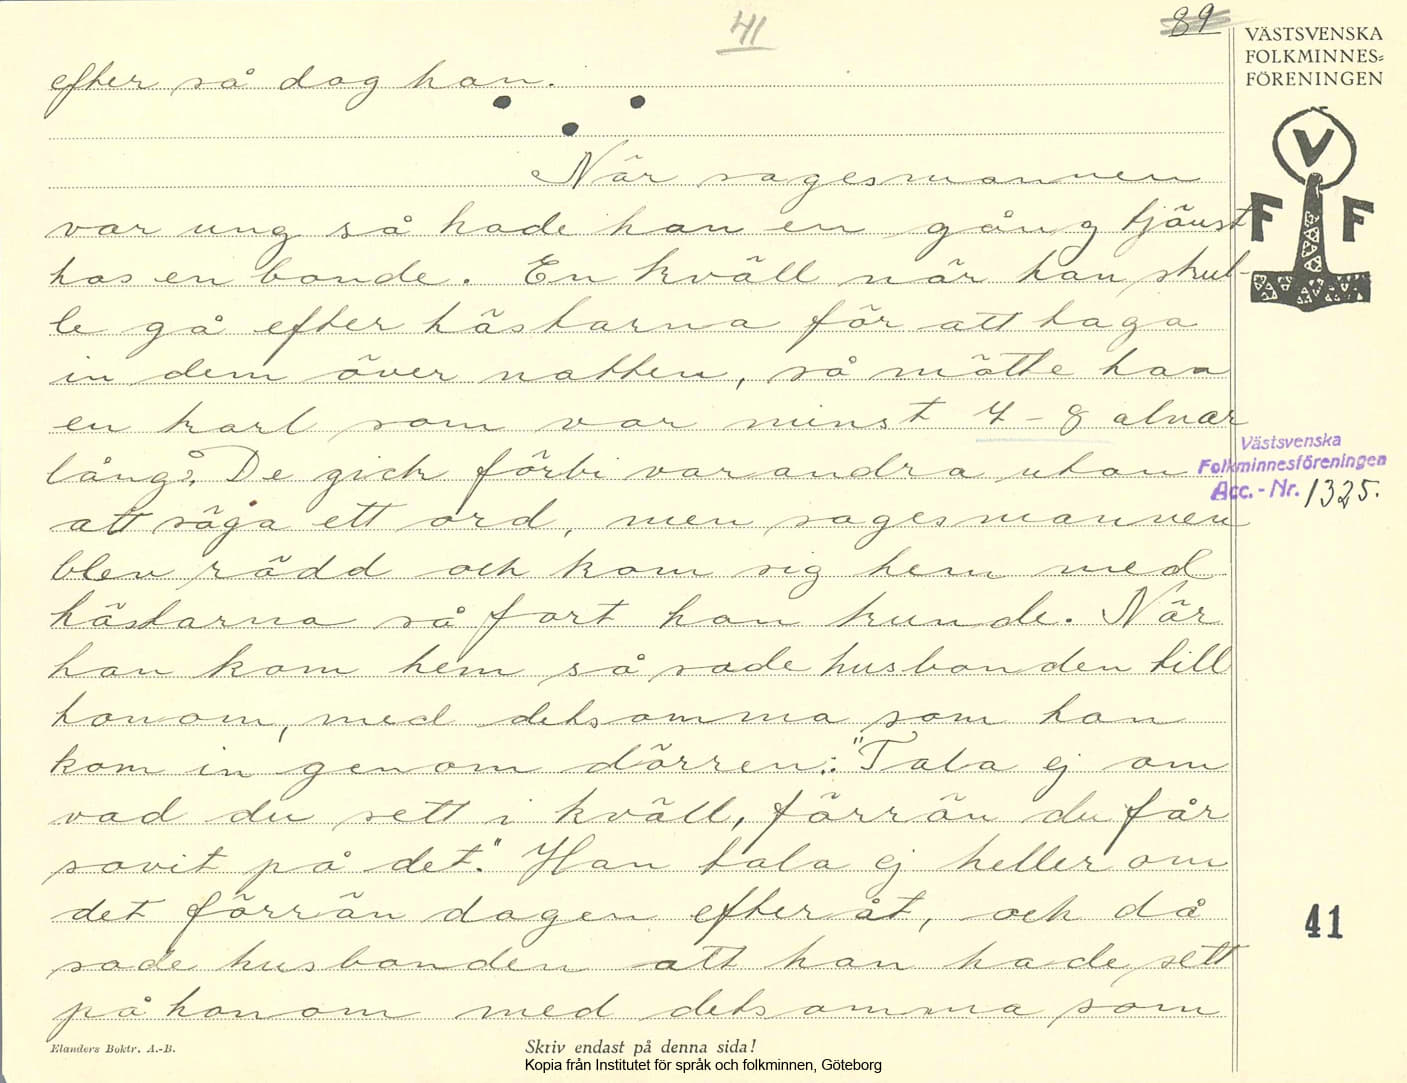 41
89
VÄSTSVENSKA
FOLKMINNES=
FÖRENINGEN
V
F F
efter så dog han.
När sagesmannen
var ung så hade han en gång tjänst
hos en bonde. En kväll när han skul-
le gå efter hästarna för att taga
in dem över natten, så mötte han
en karl som var minst 7-8 alnar
lång. De gick förbi varandra utan
att säga ett ord, men sagesmannen
blev rädd och kom sig hem med
hästarna så fort han kunde. När
han kom hem så sade husbonden till
honom, med detsamma som han
kom in genom dörren: "Tala ej om
vad du sett i kväll, förrän du får
sovit på det." Han tala ej heller om
det förrän dagen efteråt, och då
sade husbonden att han hade sett
på honom med detsamma som
Västsvenska
Folkminnesföreningen
Acc.-Nr. 1325.
41
Elanders Boktr. A.-B.
Skriv endast på denna sida!
Kopia från Institutet för språk och folkminnen, Göteborg